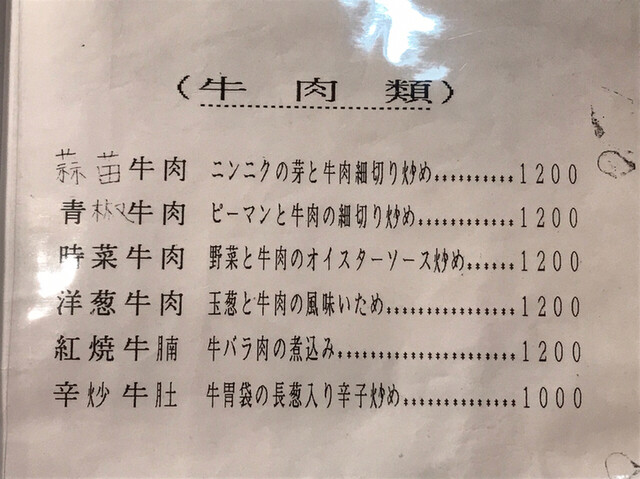 (牛肉類)
蒜苗牛肉 ニンニクの芽と牛肉細切り炒め..........1200
青椒牛肉 ピーマンと牛肉の細切り炒め............1200
時菜牛肉 野菜と牛肉のオイスターソース炒め......1200
洋葱牛肉 玉葱と牛肉の風味いため................1200
紅焼牛腩 牛バラ肉の煮込み......................1200
辛炒牛肚 牛胃袋の長葱入り辛子炒め..............1000